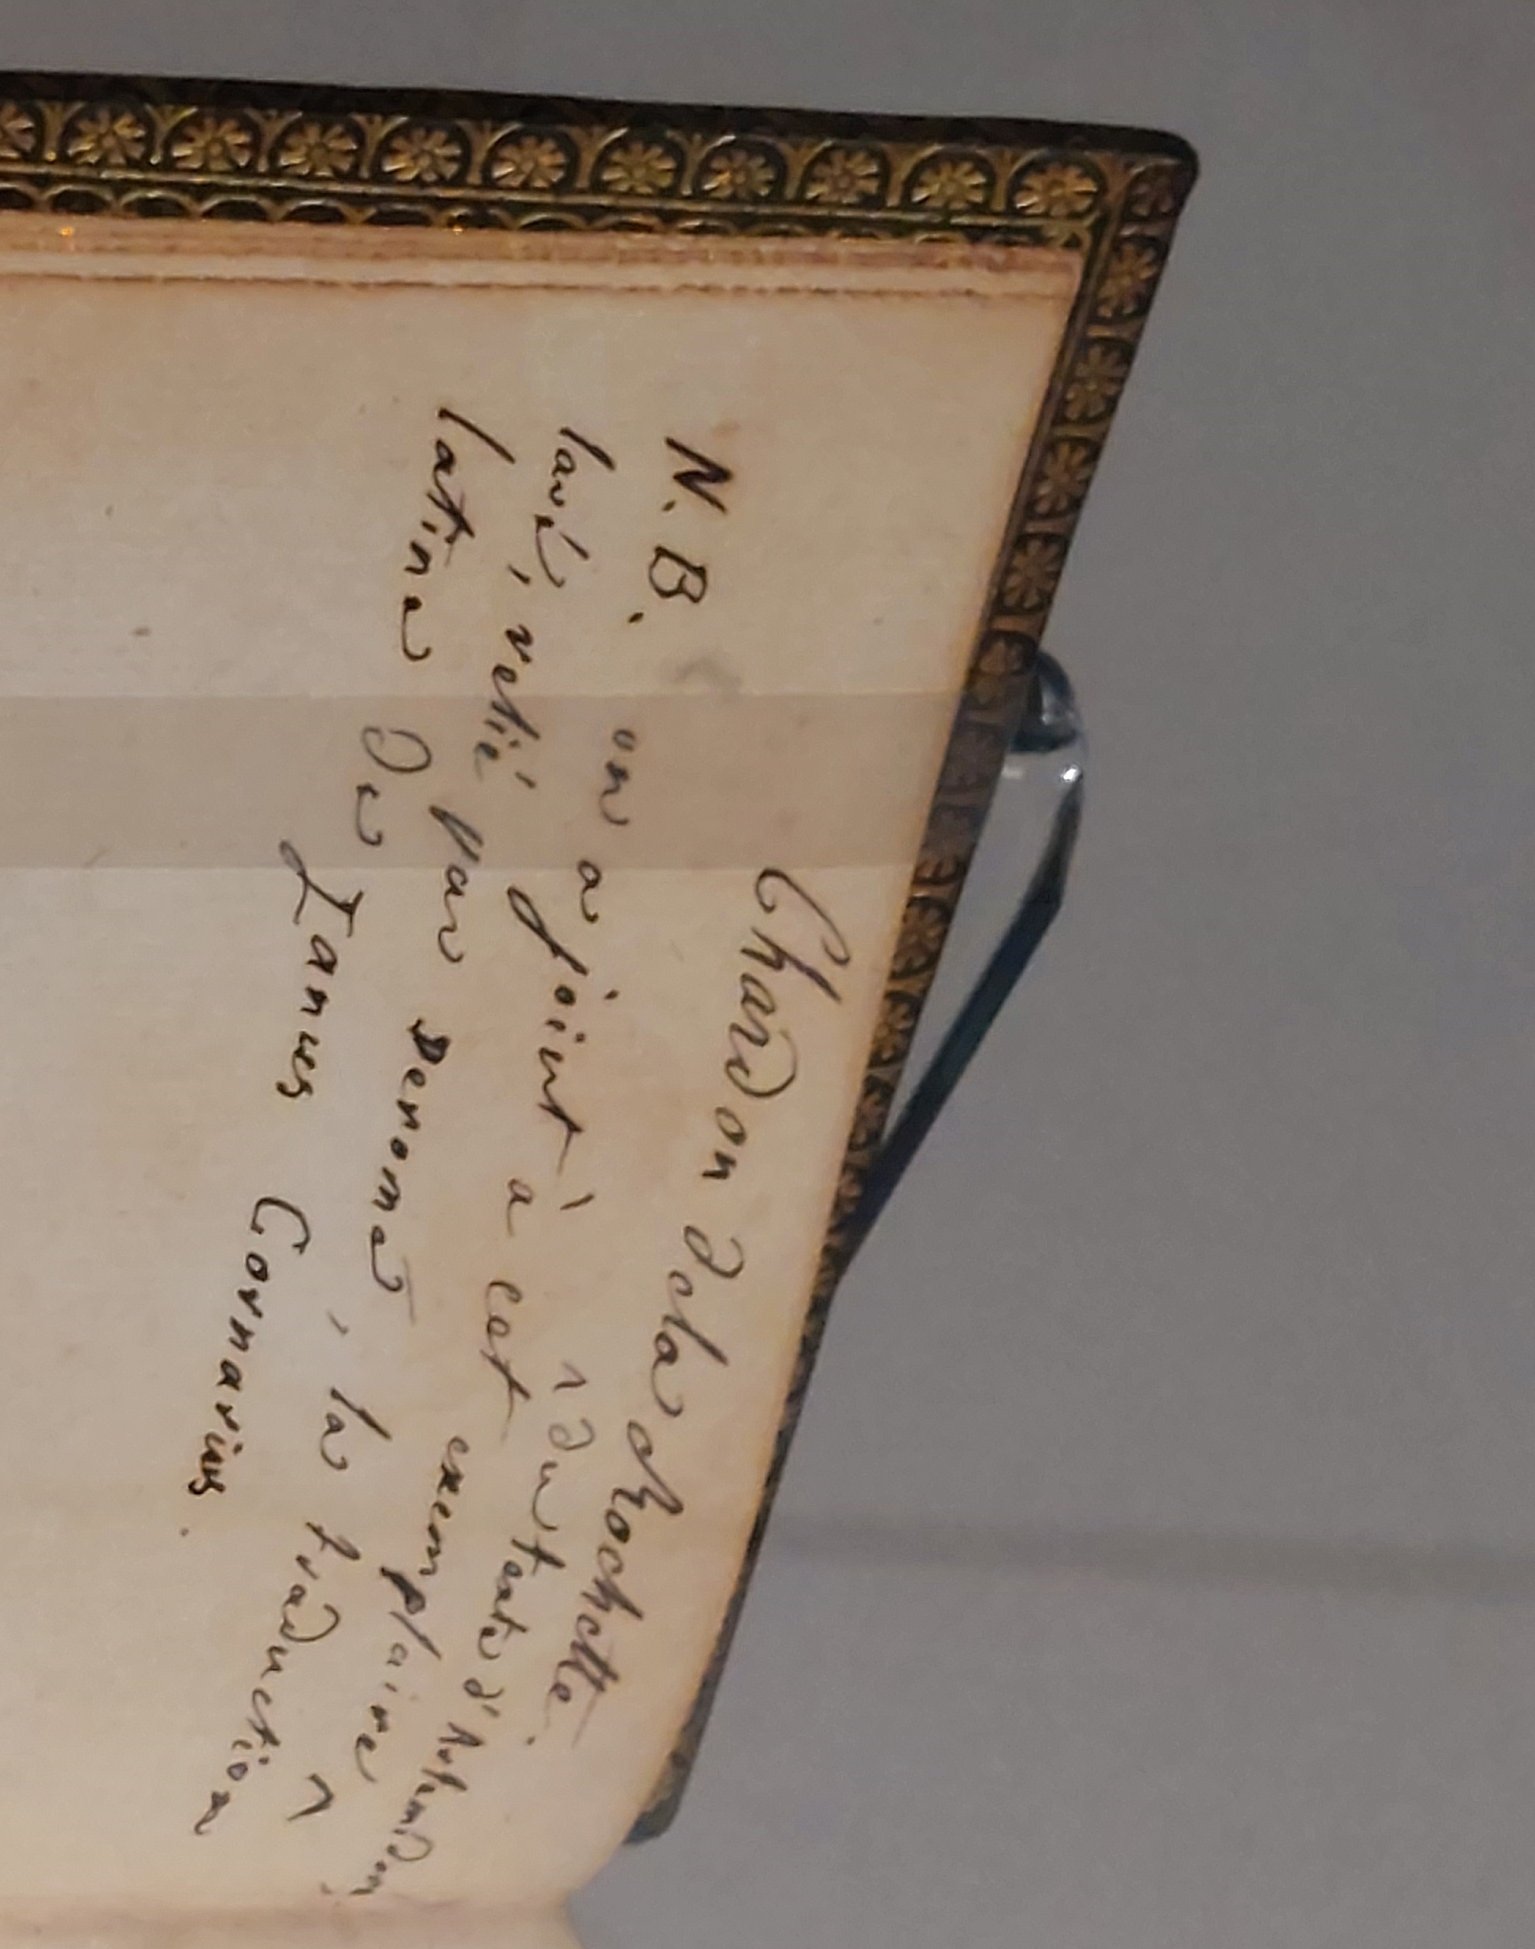 Chardon de la Rochette.
N. B. on a joint à cet exemplaire ^
^ du texte d'Artemidore,
lavé, relié par Derome, la traduction
latine de Ianus Cornarius.